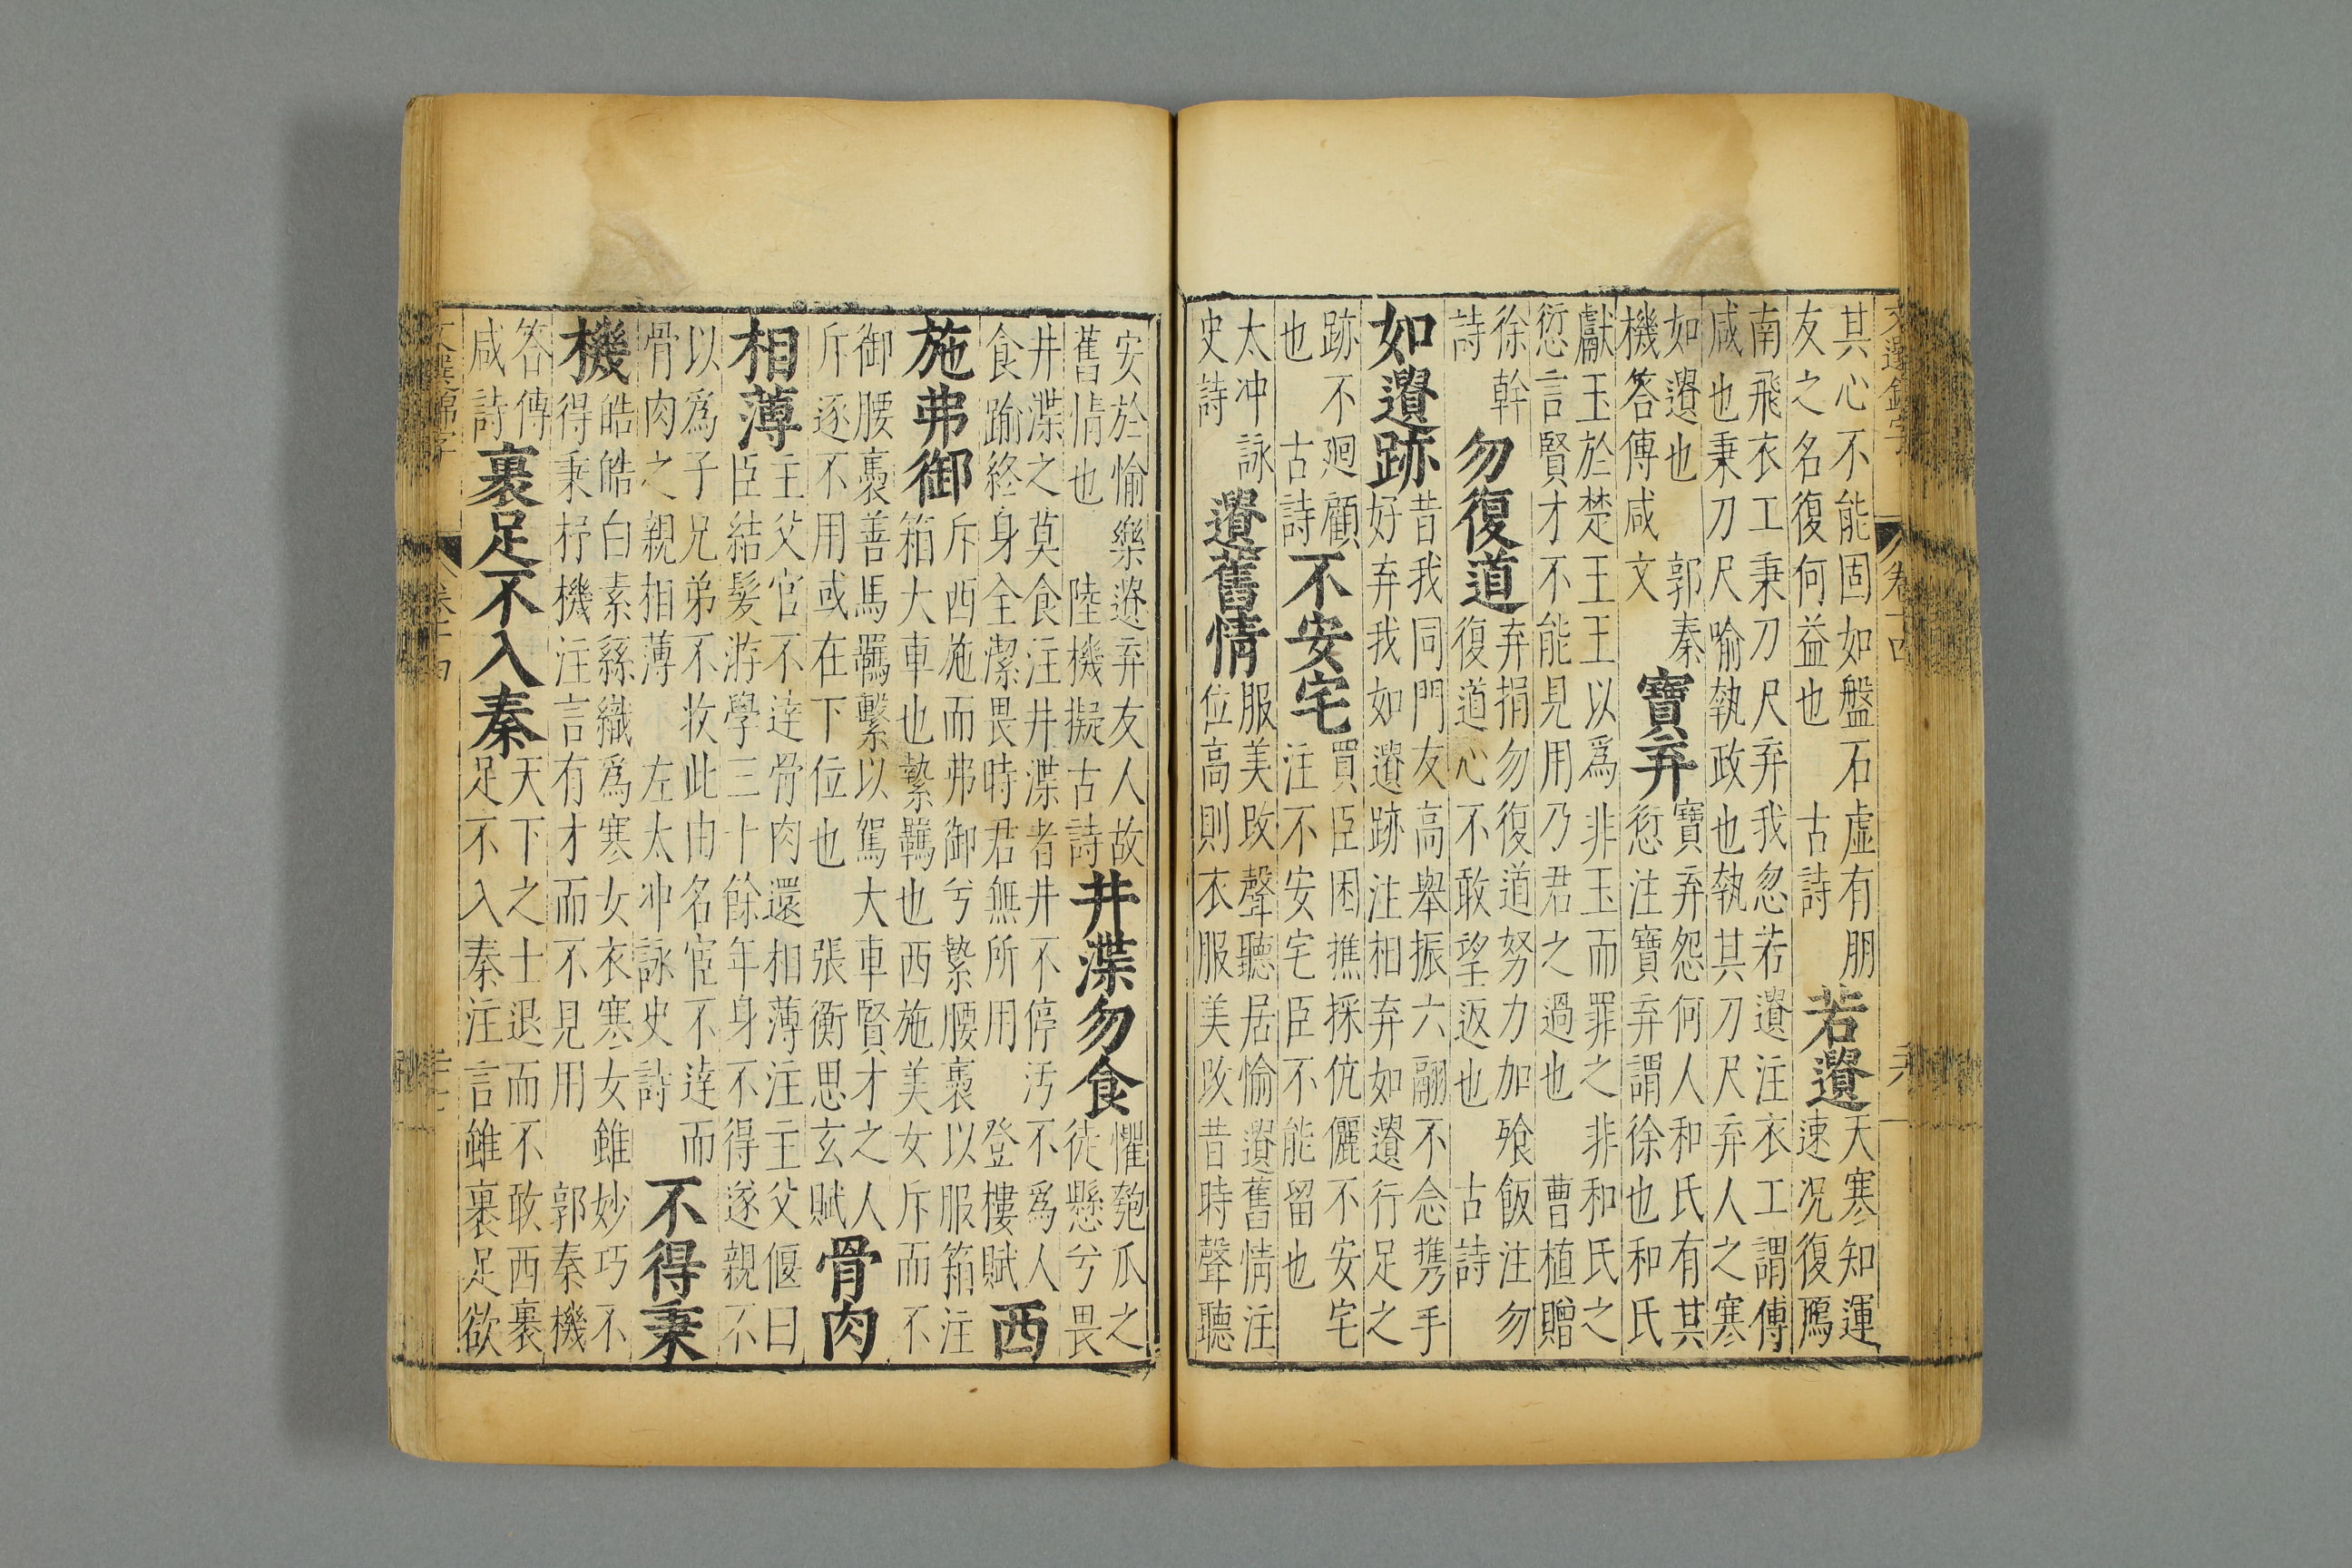 文選錦字
卷十四
其心不能固如盤石虛有朋
友之名復何益也 古詩
若遺
天寒知運
速况復鴈
南飛衣工秉刀尺弃我忽若遺注衣工謂傅
咸也秉刀尺喻執政也執其刀尺弃人之寒
如遺也 郭秦
機答傅咸文
寳弃
寳弃怨何人和氏有其
愆注寳弃謂徐也和氏
獻玉於楚王王以爲非玉而罪之非和氏之
愆言賢才不能見用乃君之過也 曹植贈
徐幹
詩
勿復道
弃捐勿復道努力加飱飯注勿
復道心不敢望返也 古詩
如遺跡
昔我同門友高舉振六翮不念携手
好弃我如遺跡注相弃如遺行足之
跡不廻顧
也 古詩
不安宅
買臣困撨採伉儷不安宅
注不安宅臣不能留也
太冲詠
史詩
遺舊情
服美改聲聽居愉遺舊情注
位高則衣服美改昔時聲聽
安於愉樂遊弃友人故
舊情也 陸機擬古詩
井渫勿食
懼匏瓜之
徒懸兮畏
井渫之莫食注井渫者井不停汚不爲人
食踰終身全潔畏時君無所用 登樓賦
西
施弗御
斥西施而弗御兮縶腰褭以服箱注
箱大車也縶羈也西施美女斥而不
御腰褭善馬羈繫以駕大車賢才之人
斥逐不用或在下位也 張衡思玄賦
骨肉
相薄
主父官不達骨肉還相薄注主父偃曰
臣結髮游學三十餘年身不得遂親不
以爲子兄弟不收此由名宦不達而
骨肉之親相薄 左太冲詠史詩
不得秉
機
皓皓白素絲織爲寒女衣寒女雖妙巧不
得秉杼機注言有才而不見用 郭秦機
答傅
咸詩
裹足不入秦
天下之士退而不敢西裹
足不入秦注言雖裹足欲
文選錦字
卷十四